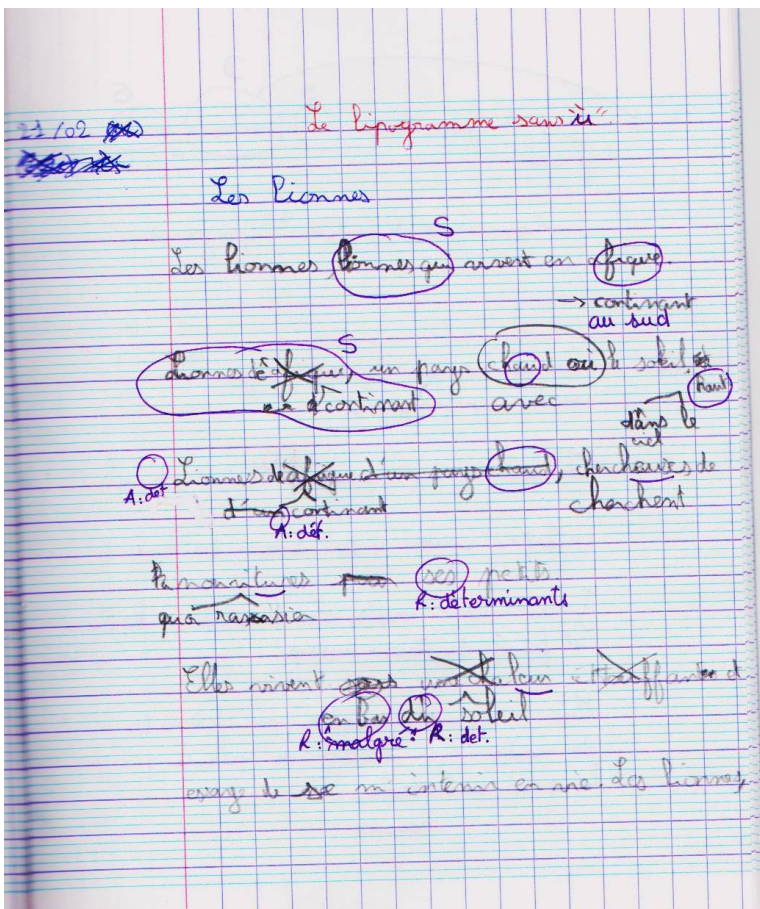 21/02
Le lipogramme sans "u"
Les lionnes
S
Les lionnes, lionnes qui vivent en afrique.
→ continant
au sud
S
Lionnes de afrique, un pays chaud où le soleil
haut
continant avec dans le
ciel
A: det Lionnes de afrique d'un pays chaud, cherchauses de
d'un continant cherchent
A: dét.
la nourritures pour ses petits.
qu'a rassasier R: déterminants
Elles vivent sous
en bas du soleil
R: malgré? R: det.
essaye de se m intenir en vie. Les lionnes,